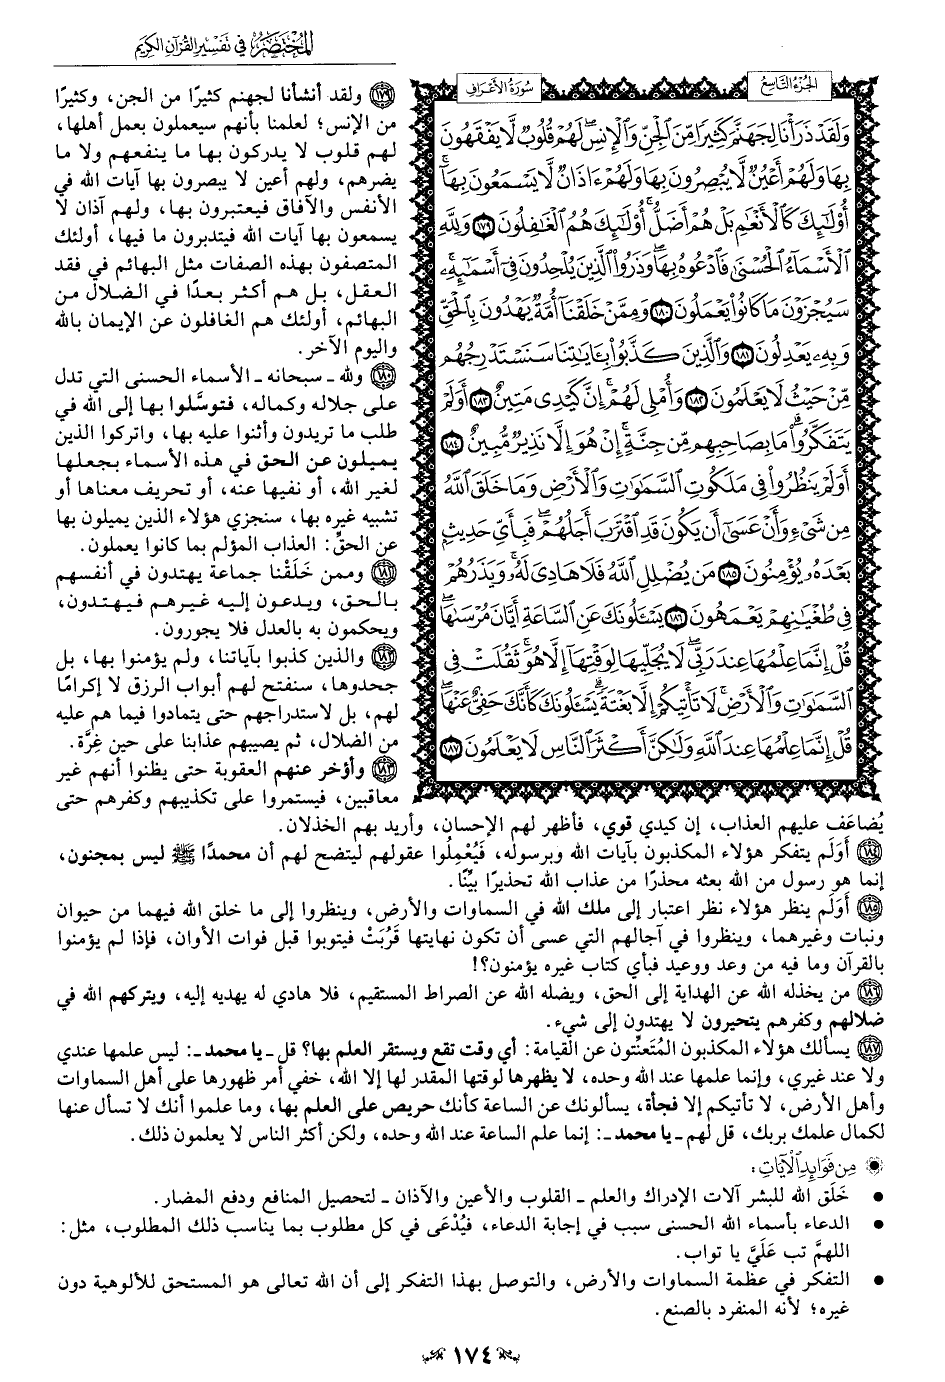 المُخْتَصَرُ في تَفْسِيرِ القُرْآنِ الكَرِيمِ
الجُزءُ التَّاسِعُ
سُورَةُ الأَعْرَافِ
وَلَقَدْ ذَرَأْنَا لِجَهَنَّمَ كَثِيرًا مِّنَ ٱلْجِنِّ وَٱلْإِنسِۖ لَهُمْ قُلُوبٌ لَّا يَفْقَهُونَ
بِهَا وَلَهُمْ أَعْيُنٌ لَّا يُبْصِرُونَ بِهَا وَلَهُمْ ءَاذَانٌ لَّا يَسْمَعُونَ بِهَآۚ
أُوْلَٰٓئِكَ كَٱلْأَنْعَٰمِ بَلْ هُمْ أَضَلُّۚ أُوْلَٰٓئِكَ هُمُ ٱلْغَٰفِلُونَ ١٧٩ وَلِلَّهِ
ٱلْأَسْمَآءُ ٱلْحُسْنَىٰ فَٱدْعُوهُ بِهَاۖ وَذَرُواْ ٱلَّذِينَ يُلْحِدُونَ فِىٓ أَسْمَٰٓئِهِۦۚ
سَيُجْزَوْنَ مَا كَانُواْ يَعْمَلُونَ ١٨٠ وَمِمَّنْ خَلَقْنَآ أُمَّةٌ يَهْدُونَ بِٱلْحَقِّ
وَبِهِۦ يَعْدِلُونَ ١٨١ وَٱلَّذِينَ كَذَّبُواْ بِـَٔايَٰتِنَا سَنَسْتَدْرِجُهُم
مِّنْ حَيْثُ لَا يَعْلَمُونَ ١٨٢ وَأُمْلِى لَهُمْۚ إِنَّ كَيْدِى مَتِينٌ ١٨٣ أَوَلَمْ
يَتَفَكَّرُواْۗ مَا بِصَاحِبِهِم مِّن جِنَّةٍۚ إِنْ هُوَ إِلَّا نَذِيرٌ مُّبِينٌ ١٨٤
أَوَلَمْ يَنظُرُواْ فِى مَلَكُوتِ ٱلسَّمَٰوَٰتِ وَٱلْأَرْضِ وَمَا خَلَقَ ٱللَّهُ
مِن شَىْءٍ وَأَنْ عَسَىٰٓ أَن يَكُونَ قَدِ ٱقْتَرَبَ أَجَلُهُمْۖ فَبِأَىِّ حَدِيثٍۭ
بَعْدَهُۥ يُؤْمِنُونَ ١٨٥ مَن يُضْلِلِ ٱللَّهُ فَلَا هَادِىَ لَهُۥۚ وَيَذَرُهُمْ
فِى طُغْيَٰنِهِمْ يَعْمَهُونَ ١٨٦ يَسْـَٔلُونَكَ عَنِ ٱلسَّاعَةِ أَيَّانَ مُرْسَىٰهَاۖ
قُلْ إِنَّمَا عِلْمُهَا عِندَ رَبِّىۖ لَا يُجَلِّيهَا لِوَقْتِهَآ إِلَّا هُوَۚ ثَقُلَتْ فِى
ٱلسَّمَٰوَٰتِ وَٱلْأَرْضِۚ لَا تَأْتِيكُمْ إِلَّا بَغْتَةًۗ يَسْـَٔلُونَكَ كَأَنَّكَ حَفِىٌّ عَنْهَاۖ
قُلْ إِنَّمَا عِلْمُهَا عِندَ ٱللَّهِ وَلَٰكِنَّ أَكْثَرَ ٱلنَّاسِ لَا يَعْلَمُونَ ١٨٧
١٧٩ ولقد أنشأنا لجهنم كثيرًا من الجن، وكثيرًا
من الإنس؛ لعلمنا بأنهم سيعملون بعمل أهلها،
لهم قلوب لا يدركون بها ما ينفعهم ولا ما
يضرهم، ولهم أعين لا يبصرون بها آيات الله في
الأنفس والآفاق فيعتبرون بها، ولهم آذان لا
يسمعون بها آيات الله فيتدبرون ما فيها، أولئك
المتصفون بهذه الصفات مثل البهائم في فقد
العقل، بل هم أكثر بعدًا في الضلال من
البهائم، أولئك هم الغافلون عن الإيمان بالله
واليوم الآخر.
١٨٠ ولله ـ سبحانه ـ الأسماء الحسنى التي تدل
على جلاله وكماله، فتوسَّلوا بها إلى الله في
طلب ما تريدون وأثنوا عليه بها، واتركوا الذين
يميلون عن الحق في هذه الأسماء بجعلها
لغير الله، أو نفيها عنه، أو تحريف معناها أو
تشبيه غيره بها، سنجزي هؤلاء الذين يميلون بها
عن الحقِّ: العذاب المؤلم بما كانوا يعملون.
١٨١ وممن خَلَقْنا جماعة يهتدون في أنفسهم
بالحق، ويدعون إليه غيرهم فيهتدون،
ويحكمون به بالعدل فلا يجورون.
١٨٢ والذين كذبوا بآياتنا، ولم يؤمنوا بها، بل
جحدوها، سنفتح لهم أبواب الرزق لا إكرامًا
لهم، بل لاستدراجهم حتى يتمادوا فيما هم عليه
من الضلال، ثم يصيبهم عذابنا على حين غِرَّة.
١٨٣ وأؤخر عنهم العقوبة حتى يظنوا أنهم غير
معاقبين، فيستمروا على تكذيبهم وكفرهم حتى
يُضاعَف عليهم العذاب، إن كيدي قوي، فأظهر لهم الإحسان، وأريد بهم الخذلان.
١٨٤ أَوَلَم يتفكر هؤلاء المكذبون بآيات الله وبرسوله، فَيُعْمِلُوا عقولهم ليتضح لهم أن محمدًا ﷺ ليس بمجنون،
إنما هو رسول من الله بعثه محذرًا من عذاب الله تحذيرًا بيِّنًا.
١٨٥ أَوَلَم ينظر هؤلاء نظر اعتبار إلى ملك الله في السماوات والأرض، وينظروا إلى ما خلق الله فيهما من حيوان
ونبات وغيرهما، وينظروا في آجالهم التي عسى أن تكون نهايتها قَرُبَتْ فيتوبوا قبل فوات الأوان، فإذا لم يؤمنوا
بالقرآن وما فيه من وعد ووعيد فبأي كتاب غيره يؤمنون؟!
١٨٦ من يخذله الله عن الهداية إلى الحق، ويضله الله عن الصراط المستقيم، فلا هادي له يهديه إليه، ويتركهم الله في
ضلالهم وكفرهم يتحيرون لا يهتدون إلى شيء.
١٨٧ يسألك هؤلاء المكذبون المُتَعنِّتون عن القيامة: أي وقت تقع ويستقر العلم بها؟ قل ـ يا محمد ـ: ليس علمها عندي
ولا عند غيري، وإنما علمها عند الله وحده، لا يظهرها لوقتها المقدر لها إلا الله، خفي أمر ظهورها على أهل السماوات
وأهل الأرض، لا تأتيكم إلا فجأة، يسألونك عن الساعة كأنك حريص على العلم بها، وما علموا أنك لا تسأل عنها
لكمال علمك بربك، قل لهم ـ يا محمد ـ: إنما علم الساعة عند الله وحده، ولكن أكثر الناس لا يعلمون ذلك.
مِن فَوَائِدِ الآيَاتِ:
• خَلَق الله للبشر آلات الإدراك والعلم ـ القلوب والأعين والآذان ـ لتحصيل المنافع ودفع المضار.
• الدعاء بأسماء الله الحسنى سبب في إجابة الدعاء، فيُدْعَى في كل مطلوب بما يناسب ذلك المطلوب، مثل:
اللهمَّ تب عَلَيَّ يا تواب.
• التفكر في عظمة السماوات والأرض، والتوصل بهذا التفكر إلى أن الله تعالى هو المستحق للألوهية دون
غيره؛ لأنه المنفرد بالصنع.
١٧٤